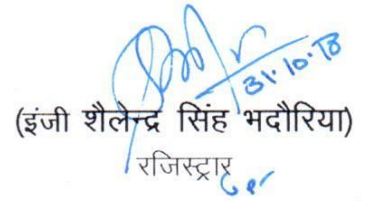 31.10.18
(इंजी शैलेन्द्र सिंह भदौरिया)
रजिस्ट्रार